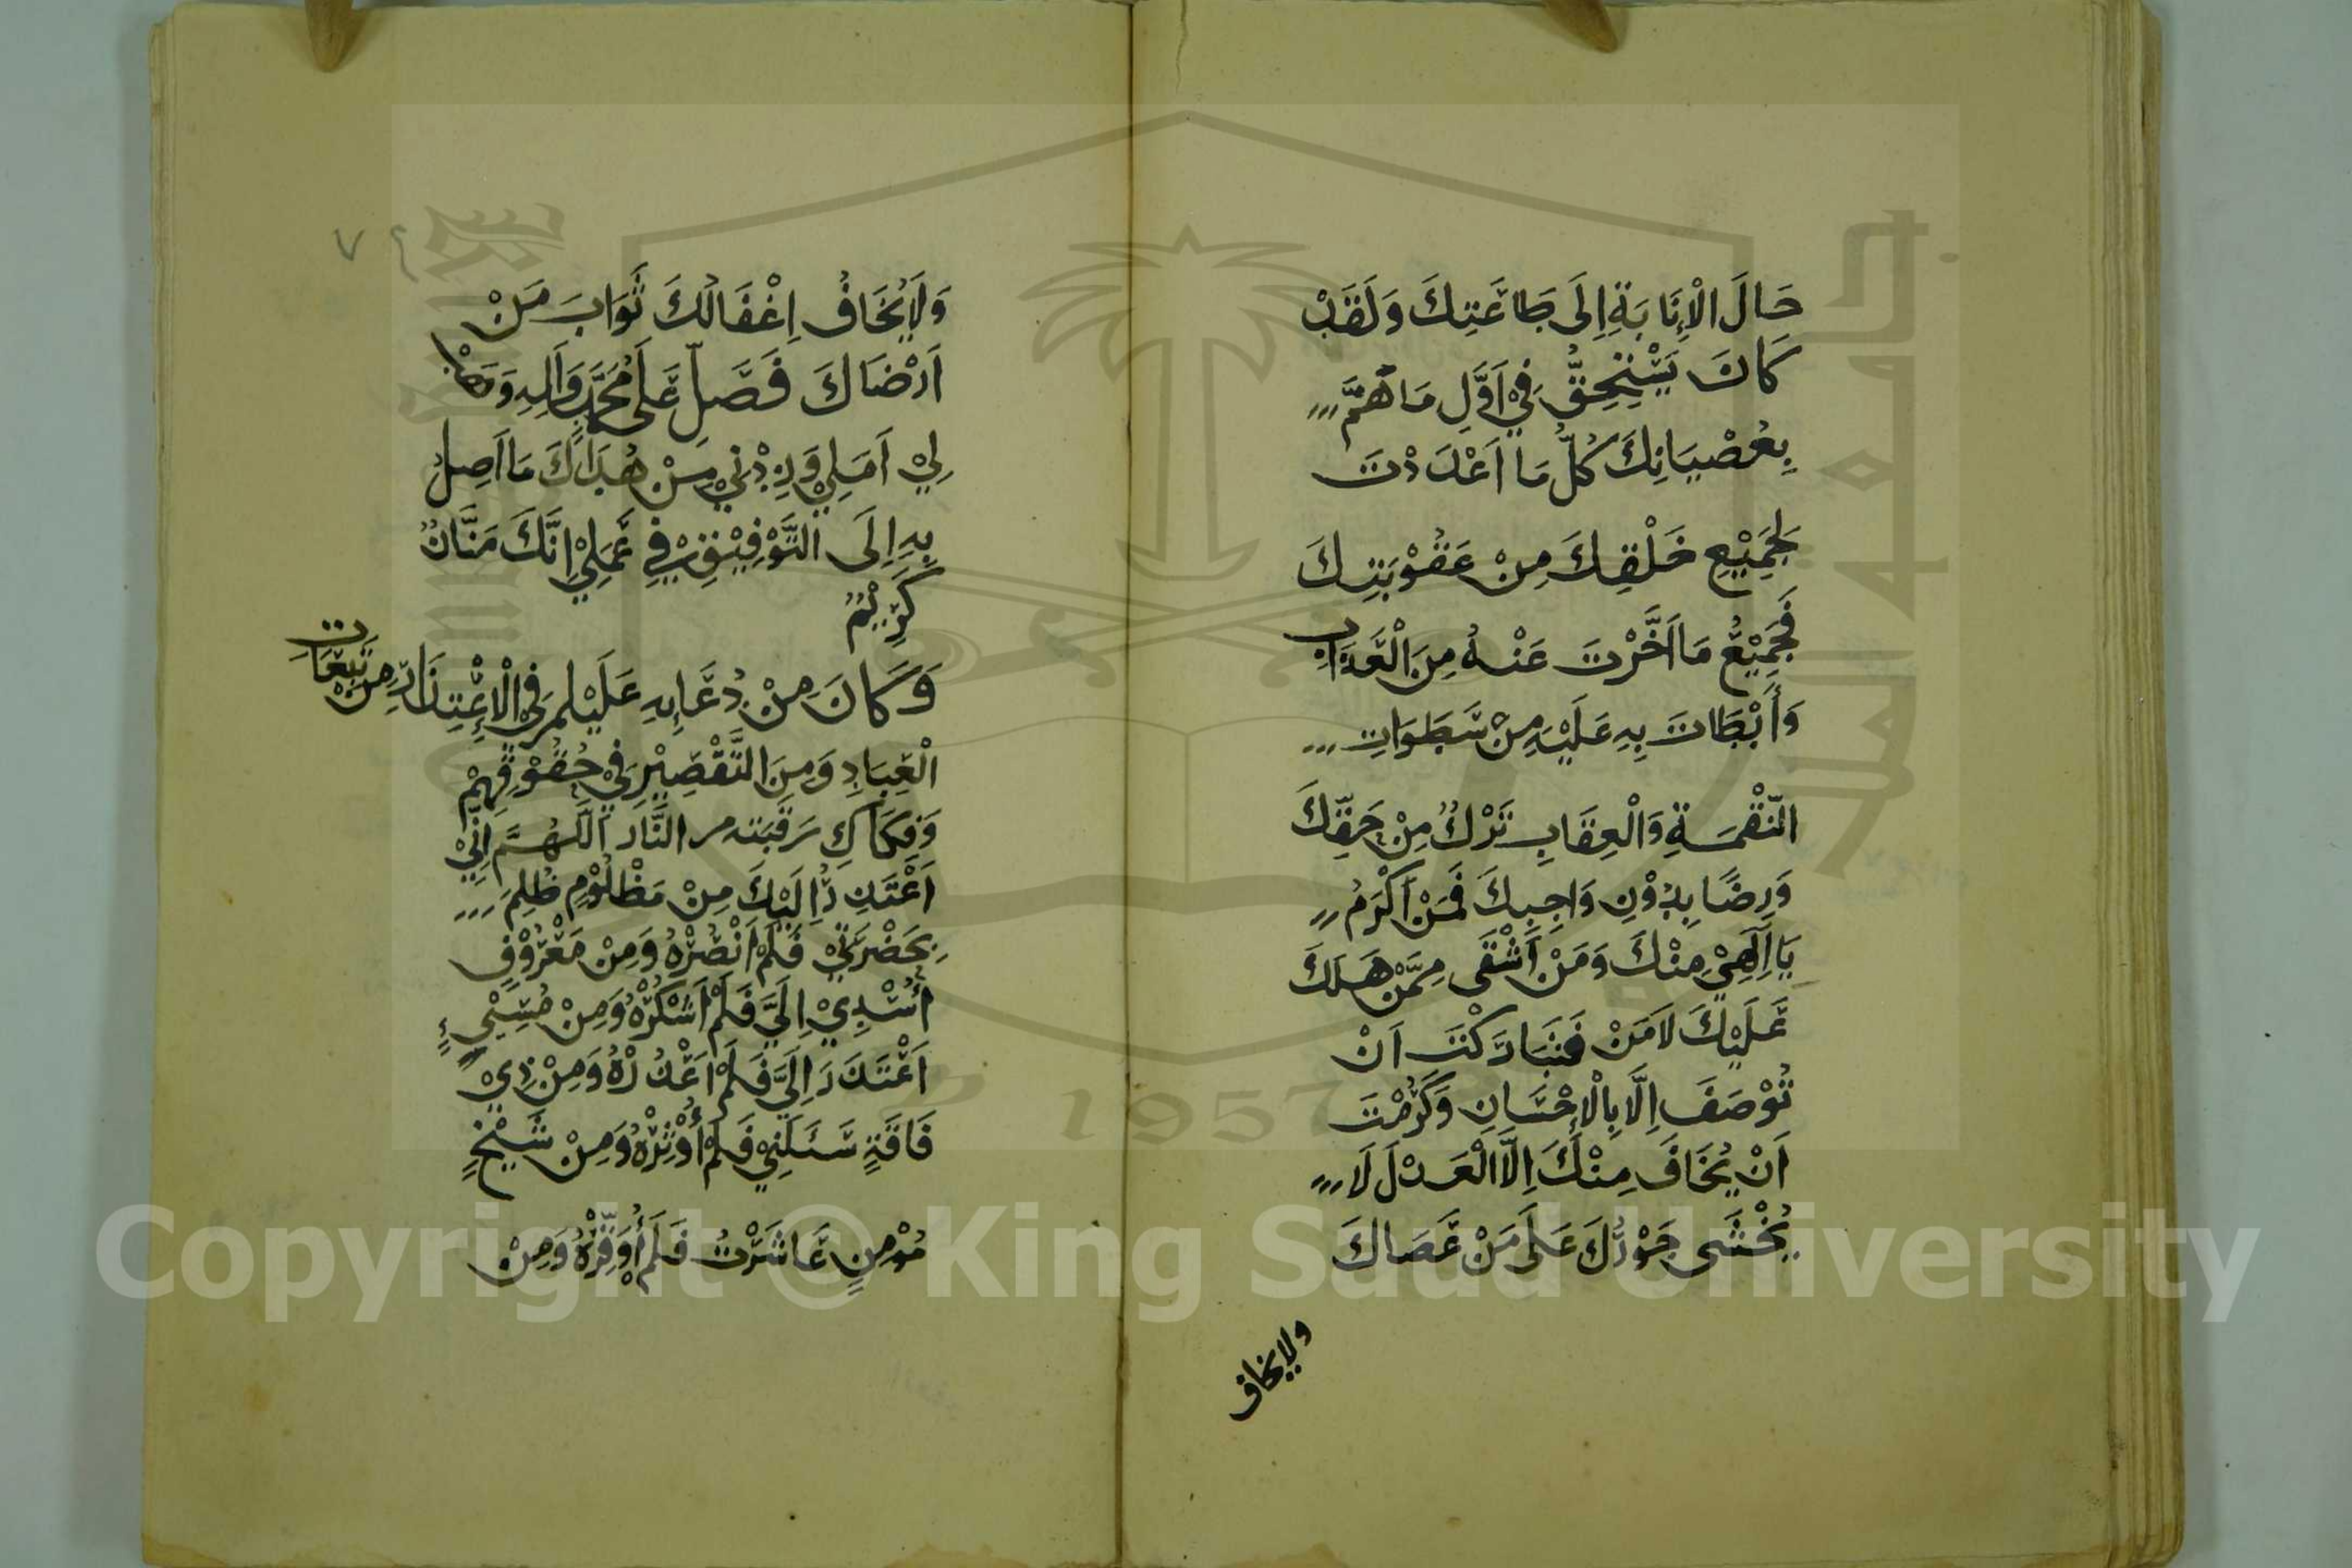 حَالَ الْإِنَابَةِ إِلَى طَاعَتِكَ وَلَقَدْ
كَانَ يَسْتَحِقُّ فِي أَوَّلِ مَا هَمَّ
بِعِصْيَانِكَ كُلَّ مَا أَعْدَدْتَ
لِجَمِيْعِ خَلْقِكَ مِنْ عُقُوْبَتِكَ
فَجَمِيْعُ مَا أَخَّرْتَ عَنْهُ مِنَ الْعَذَابِ
وَأَبْطَاتَ بِهِ عَلَيْهِ مِنْ سَطَوَاتِ
النَّقْمَةِ وَالْعِقَابِ تَرْكٌ مِنْ حَقِّكَ
وَرِضًا بِدُوْنِ وَاجِبِكَ فَمَنْ أَكْرَمُ
يَا إِلَهِيْ مِنْكَ وَمَنْ أَشْقَى مِمَّنْ هَلَكَ
عَلَيْكَ لَا مَنْ فَتَبَارَكْتَ أَنْ
تُوْصَفَ إِلَّا بِالْإِحْسَانِ وَكَرُمْتَ
أَنْ يُخَافَ مِنْكَ إِلَّا الْعَدْلَ لَا
يُخْشَى جَوْرُكَ عَلَى مَنْ عَصَاكَ
ولا يخاف
٧٤
وَلَا يُخَافُ إِغْفَالُكَ ثَوَابَ مَنْ
أَرْضَاكَ فَصَلِّ عَلَى مُحَمَّدٍ وَآلِهِ وَهَبْ
لِيْ أَمَلِيْ وَزِدْنِيْ مِنْ هُدَاكَ مَا أَصِلُ
بِهِ إِلَى التَّوْفِيْقِ فِي عَمَلِيْ إِنَّكَ مَنَّانٌ
كَرِيْمٌ
وَكَانَ مِنْ دُعَائِهِ عَلَيْلم فِي الْإِعْتِذَارِ مِنْ تَبِعَاتِ
الْعِبَادِ وَمِنَ التَّقْصِيْرِ فِيْ حُقُوْقِهِمْ
وَفِكَاكِ رَقَبَتِه من النَّار اللَّهُمَّ إِنِّيْ
أَعْتَذِرُ إِلَيْكَ مِنْ مَظْلُوْمٍ ظُلِمَ
بِحَضْرَتِيْ فَلَمْ أَنْصُرْهُ وَمِنْ مَعْرُوْفٍ
أُسْدِيْ إِلَيَّ فَلَمْ أَشْكُرْهُ وَمِنْ مُسِيْئٍ
أَعْتَذَرَ إِلَيَّ فَلَمْ أَعْذُرْهُ وَمِنْ ذِيْ
فَاقَةٍ سَئَلَنِيْ فَلَمْ أُوْثِرْهُ وَمِنْ شَيْخٍ
مُؤْمِنٍ عَاشَرْتُ فَلَمْ أُوَقِّرْهُ وَمِنْ
1957
Copyright © King Saud University